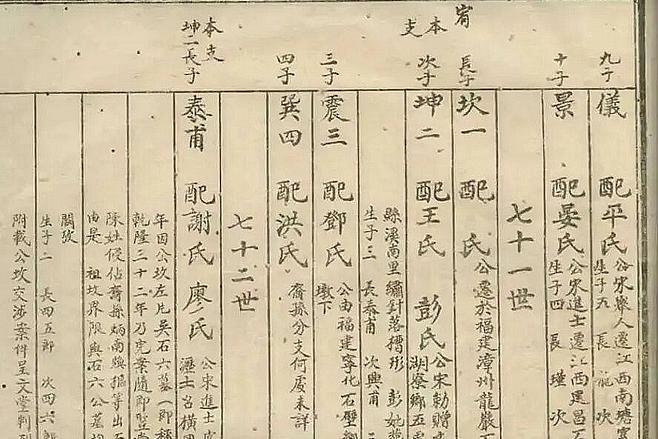 九子
儀 配平氏
公宋舉人遷江西南
生子九 長龍 次
十子
景 配晏氏
公宋進士遷江西建昌
生子四 長瑾 次
七十一世
甯
長子
坎一 配 氏
公遷於福建漳州龍巖
本支
次子
坤二 配王氏 彭氏
公宋勅贈
湖寮鄉五
縣溪南里繡針落槽形 彭妣葬
生子三 長泰甫 次興甫 三
三子
震三 配鄧氏
公由福建寧化石壁
墩下
四子
巽四 配洪氏
裔孫分支何處未詳
七十二世
本支
坤二長子
泰甫 配謝氏 廖氏
公宋進士
瀝士名橫
年因公坎左片吳石六墓一即
乾隆三十二年乃完案隨即豎
陳姓侵佔裔孫炳南煥揚等出
由是 祖坎界限與石六公墓
闊攷
生子二 長四五郎 次四六郎
附載公坎交涉案件呈文堂判